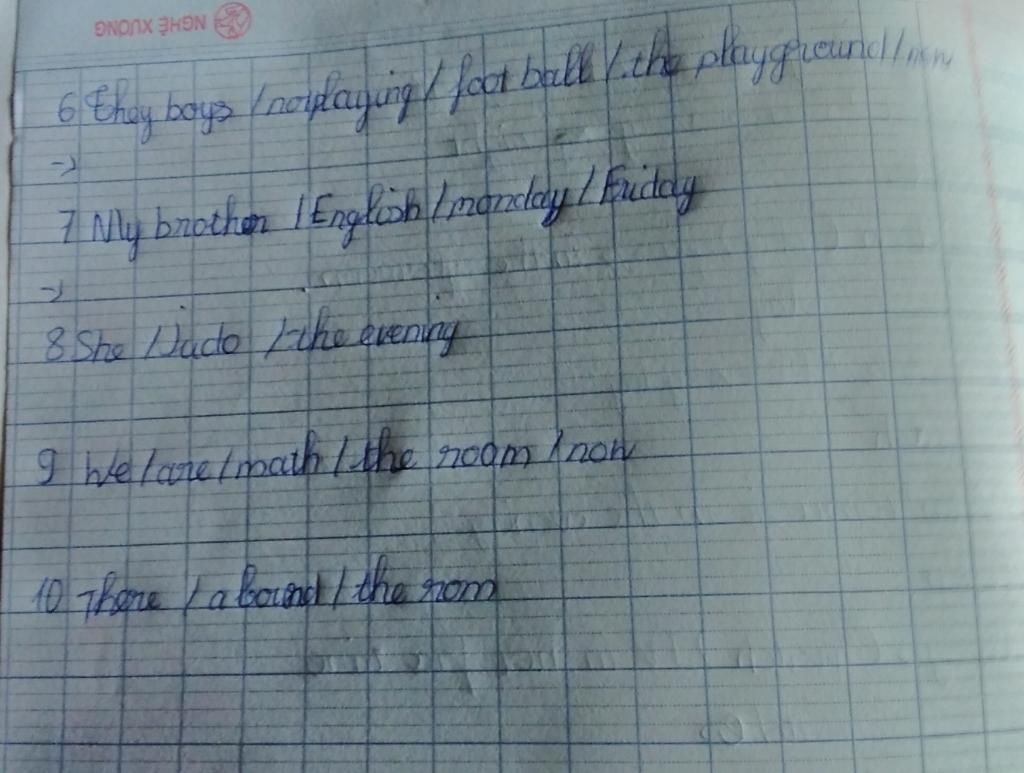 NGHỆ XƯƠNG
6 they boys / not playing / foot ball / the playground / now
->
7 My brother / English / monday / Friday
->
8 She / Judo / the evening
9 We / are / math / the room / now
10 There / a board / the rom